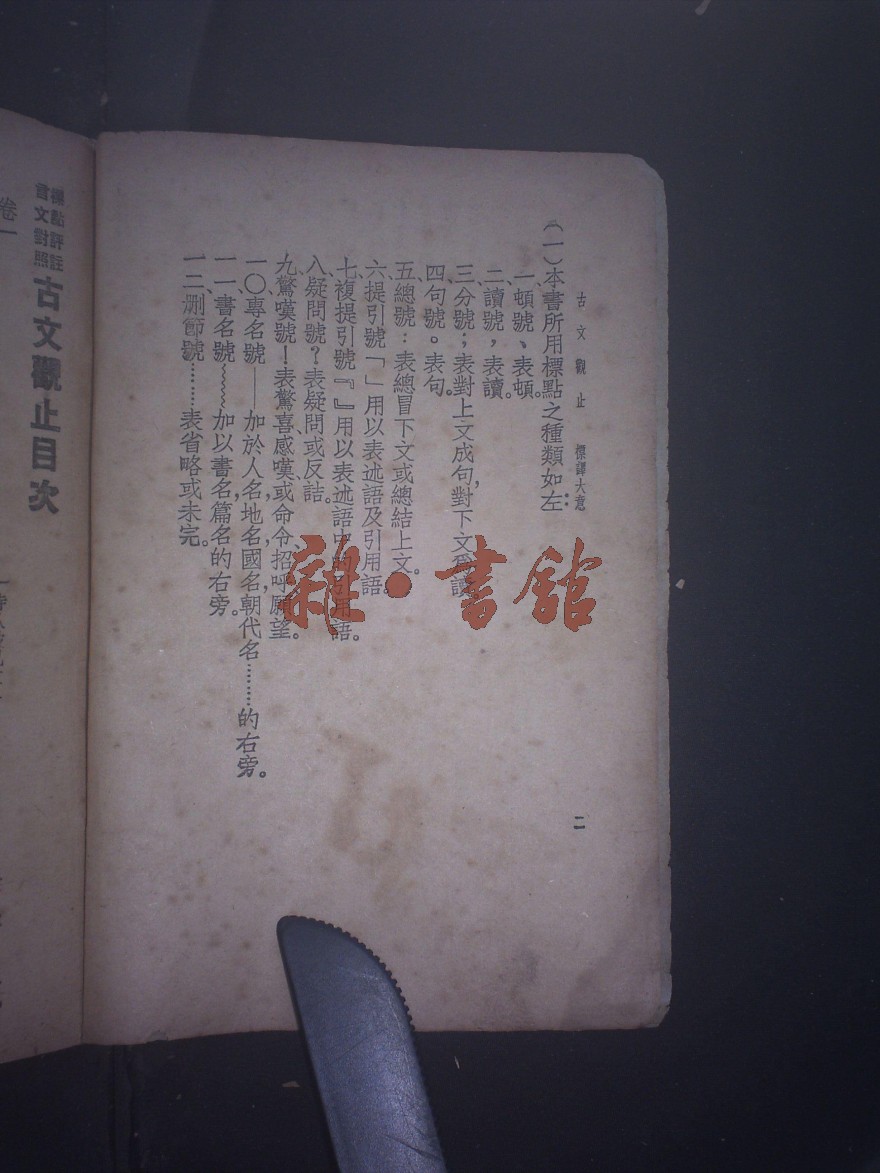 古文觀止　標譯大意
二
(一)本書所用標點之種類如左：
一、頓號、表頓。
二、讀號，表讀。
三、分號；表對上文成句，對下文爲讀
四、句號。表句。
五、總號：表總冒下文或總結上文。
六、提引號「」用以表述語及引用語。
七、複提引號『』用以表述語中的引用語。
八、疑問號？表疑問或反詰。
九、驚嘆號！表驚喜、感嘆或命令、招呼、願望。
一〇、專名號——加於人名、地名、國名、朝代名………的右旁。
一一、書名號﹏﹏加以書名、篇名的右旁。
一二、刪節號………表省略或未完。
標點評註
言文對照
古文觀止目次
卷一
雜•書館